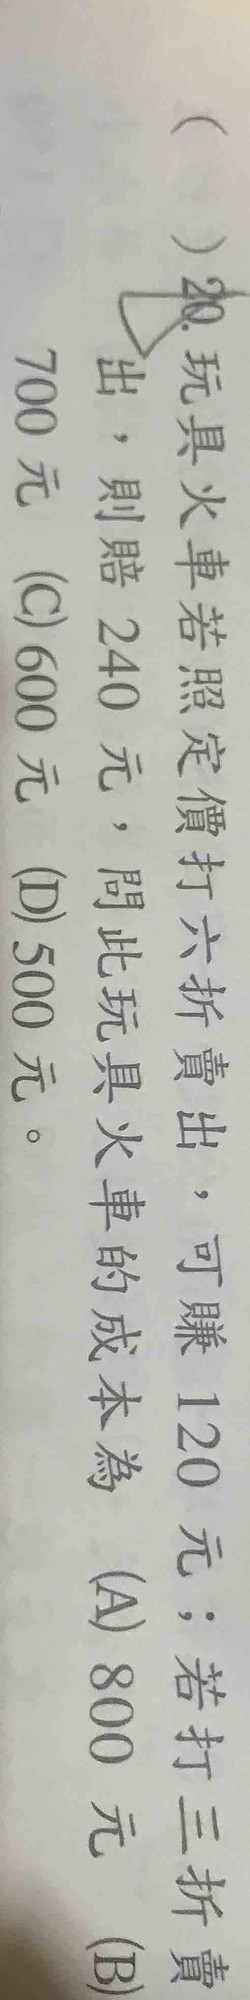 ( ) 20. 玩具火車若照定價打六折賣出，可賺 120 元；若打三折賣
出，則賠 240 元，問此玩具火車的成本為 (A) 800 元 (B)
700 元 (C) 600 元 (D) 500 元。